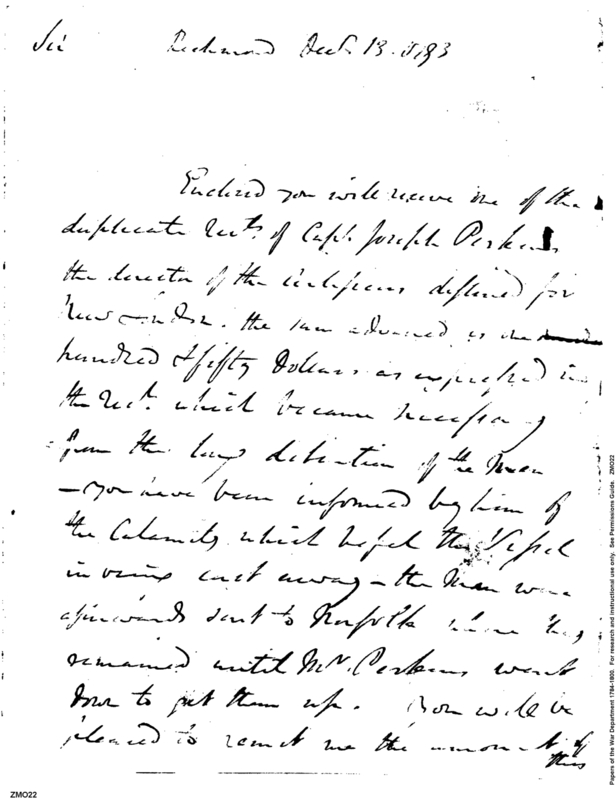 Sir Richmond Decr. 13. 1793
Enclosed you will receive one of the
duplicate rects. of Capt. Joseph Perkins
the director of the artificers destined for
New London. the sum advanced is one
hundred & fifty Dollars as expressed in
the rect. which became necessary
from the long detention of the men
– you have been informed by him of
the Calamity which befel the Vessel
in being cast away – the men were
afterwards sent to Norfolk where they
remained until Mr. Perkins went
down to get them up. You will be
pleased to remit me the amount of
this
ZMO22
Papers of the War Department 1784-1800. For research and instructional use only. See Permissions Guide. ZMO22